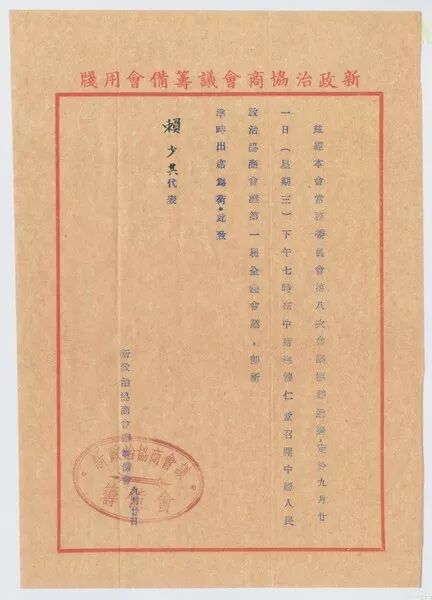 新政治協商會議籌備會用牋
茲經本會常務委員會第八次會議,定於九月廿
一日(星期三)下午七時在中南海懷仁堂召開中國人民
政治協商會議第一屆全體會議,即祈
準時出席為荷。此致
賴少其代表
新政治協商會議籌備會 九月廿日
新政治協商會議
籌備會